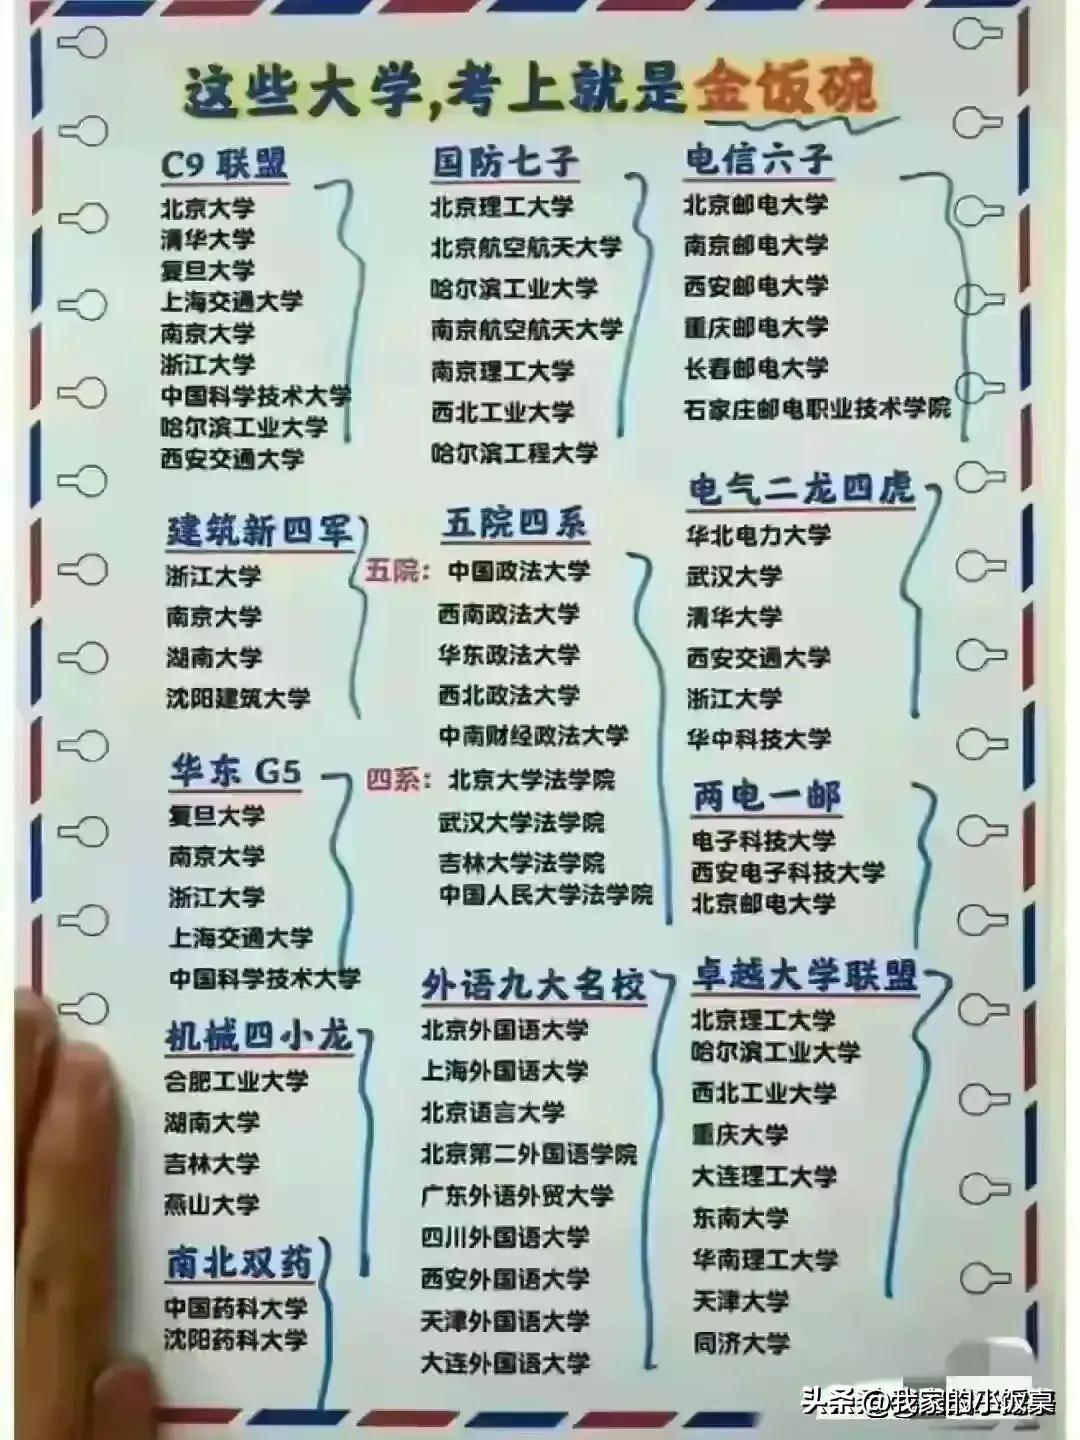 这些大学,考上就是金饭碗
C9 联盟
北京大学
清华大学
复旦大学
上海交通大学
南京大学
浙江大学
中国科学技术大学
哈尔滨工业大学
西安交通大学
国防七子
北京理工大学
北京航空航天大学
哈尔滨工业大学
南京航空航天大学
南京理工大学
西北工业大学
哈尔滨工程大学
电信六子
北京邮电大学
南京邮电大学
西安邮电大学
重庆邮电大学
长春邮电大学
石家庄邮电职业技术学院
建筑新四军
浙江大学
南京大学
湖南大学
沈阳建筑大学
五院四系
五院：中国政法大学
西南政法大学
华东政法大学
西北政法大学
中南财经政法大学
四系：北京大学法学院
武汉大学法学院
吉林大学法学院
中国人民大学法学院
电气二龙四虎
华北电力大学
武汉大学
清华大学
西安交通大学
浙江大学
华中科技大学
华东 G5
复旦大学
南京大学
浙江大学
上海交通大学
中国科学技术大学
两电一邮
电子科技大学
西安电子科技大学
北京邮电大学
机械四小龙
合肥工业大学
湖南大学
吉林大学
燕山大学
外语九大名校
北京外国语大学
上海外国语大学
北京语言大学
北京第二外国语学院
广东外语外贸大学
四川外国语大学
西安外国语大学
天津外国语大学
大连外国语大学
卓越大学联盟
北京理工大学
哈尔滨工业大学
西北工业大学
重庆大学
大连理工大学
东南大学
华南理工大学
天津大学
同济大学
南北双药
中国药科大学
沈阳药科大学
头条@我家的小饭桌